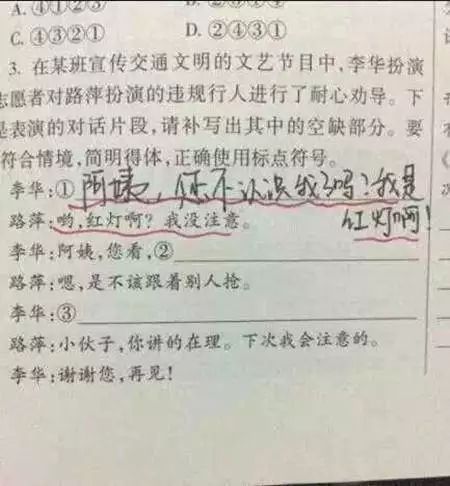 A.④①②③
C.④③②①
D.②④③①
3. 在某班宣传交通文明的文艺节目中,李华扮演
志愿者对路萍扮演的违规行人进行了耐心劝导。下
是表演的对话片段,请补写出其中的空缺部分。要
符合情境,简明得体,正确使用标点符号。
李华:①阿姨,您不认识我了吗?我是
红灯啊!
路萍:哟,红灯啊?我没注意。
李华:阿姨,您看,②
路萍:嗯,是不该跟着别人抢。
李华:③
路萍:小伙子,你讲的在理。下次我会注意的。
李华:谢谢您,再见!